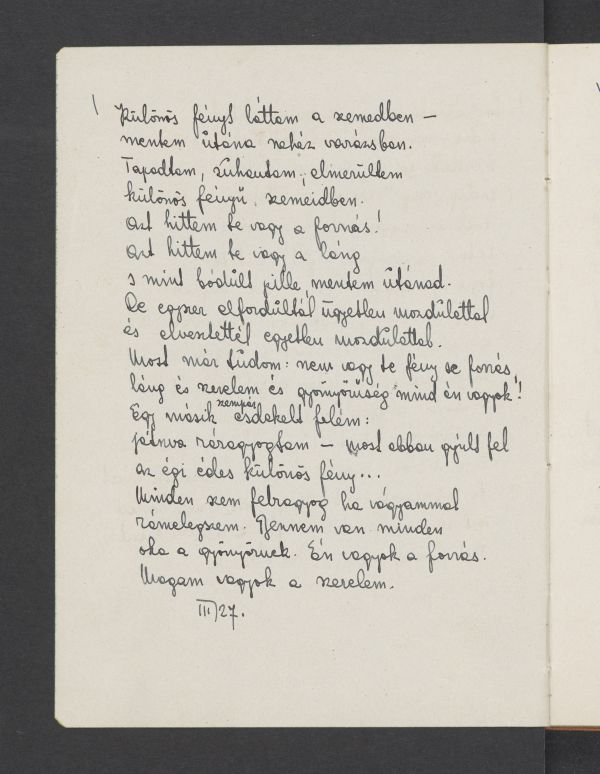 Különös fényt láttam a szemedben –
mentem utána nehéz varázsban.
Tapadtam, zuhantam, elmerültem
különös fényű szemeidben.
Azt hittem te vagy a forrás!
Azt hittem te vagy a láng
s mint bódult pille, mentem utánad.
De egyszer elfordultál ügyetlen mozdulattal
és elvesztettél egyetlen mozdulattal.
Most már tudom: nem vagy te fény se forrás,
láng és szerelem és gyönyörűség mind én vagyok!
szempár
Egy másik esdekelt felém:
játszva ráragyogtam – most abban gyúlt fel
az égi édes különös fény...
Minden szem felragyog ha vágyammal
rámelegszem. Bennem van minden
oka a gyönyörnek. Én vagyok a forrás.
Magam vagyok a szerelem.
III/27.